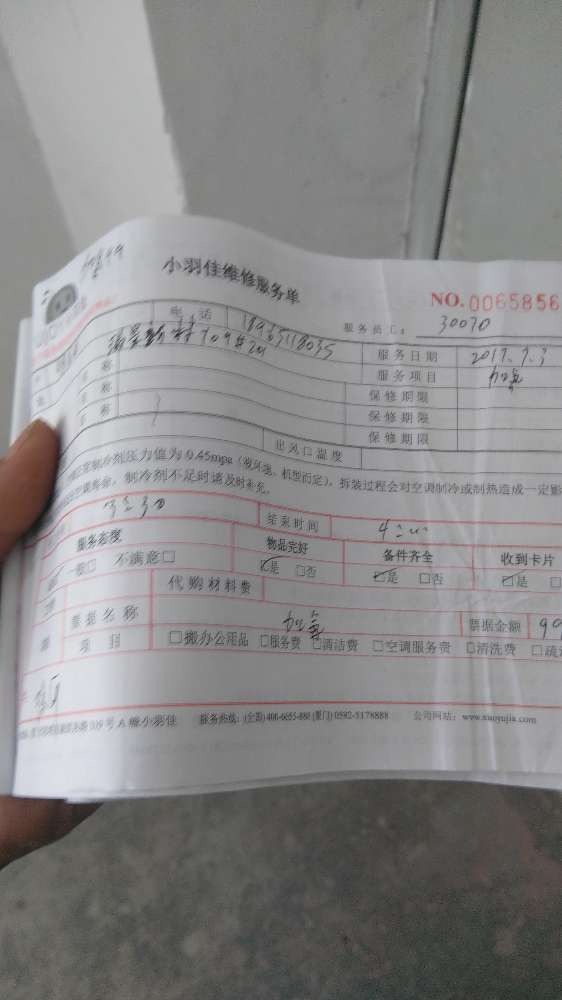 小羽佳维修服务单
NO.0065856
服务员工： 30070
电 话 18965118035
服务日期 2017.7.3
服务项目 加氟
名 称 保修期限
名 称 保修期限
名 称 保修期限
出风口温度
制冷剂压力值为0.45mpa（视环境、机型而定），拆装过程会对空调制冷或制热造成一定影
制冷剂不足时请及时补充。
3:30 结束时间
服务态度 物品完好 备件齐全 收到卡片
一般□ 不满意□ ☑是 □否 ☑是 □否 ☑是
代购材料费
票据名称 加氟 票据金额 99
项 目 □搬办公用品 □服务费 □清洁费 □空调服务费 □清洗费 □疏
109号A幢小羽佳 服务热线：(全国) 400-6655-880 (厦门) 0592-5178888 公司网站：www.xiaoyujia.com